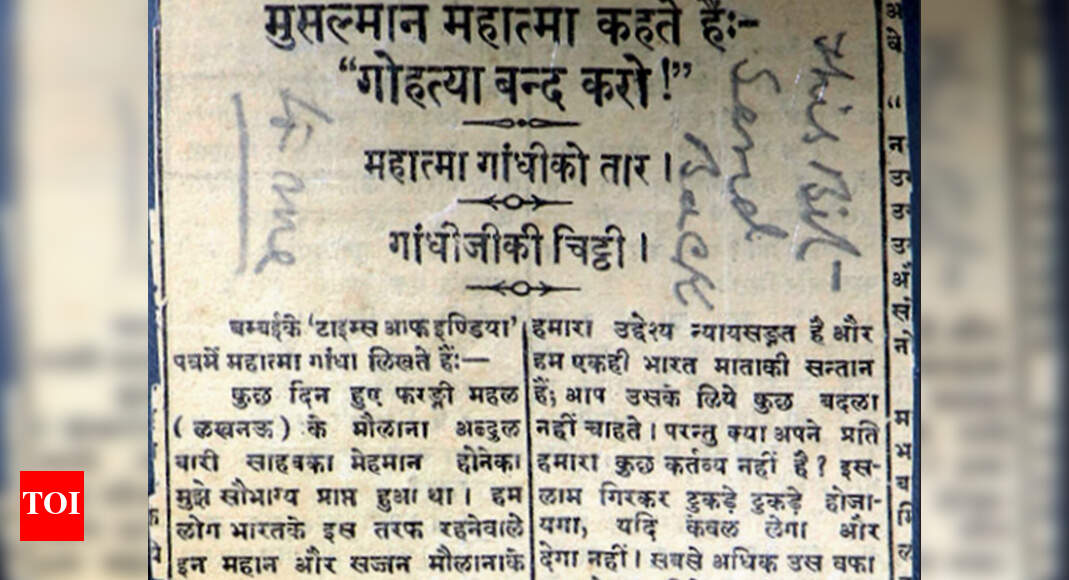 मुसल्मान महात्मा कहते हैं:-
“गोहत्या बन्द करो!”
महात्मा गांधीको तार।
गांधीजीकी चिट्ठी।
This Bit-
Send
Back
to me
बम्बईके ‘टाइम्स आफ इण्डिया’
पत्रमें महात्मा गांधी लिखते हैं:—
कुछ दिन हुए फरङ्गी महल
(लखनऊ) के मौलाना अब्दुल
बारी साहबका मेहमान होनेका
मुझे सौभाग्य प्राप्त हुआ था। हम
लोग भारतके इस तरफ रहनेवाले
इन महान और सज्जन मौलानाके
हमारा उद्देश्य न्यायसङ्गत है और
हम एकही भारत माताकी सन्तान
हैं; आप उसके लिये कुछ बदला
नहीं चाहते। परन्तु क्या अपने प्रति
हमारा कुछ कर्तव्य नहीं है? इस-
लाम गिरकर टुकड़े टुकड़े होजा-
यगा, यदि केवल लेगा और
देगा नहीं। सबसे अधिक उस वफा
TOI